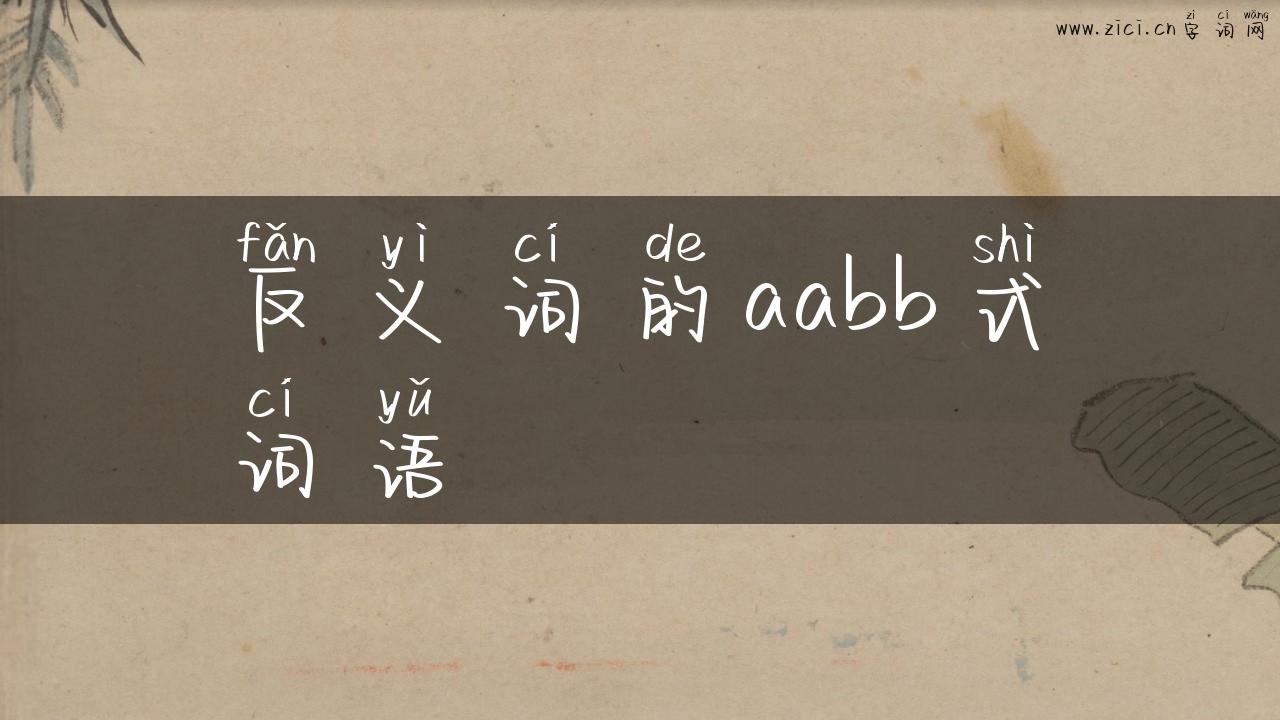 zì cí wǎng
www.zici.cn 字词网
fǎn yì cí de shì
反义词的aabb式
cí yǔ
词语